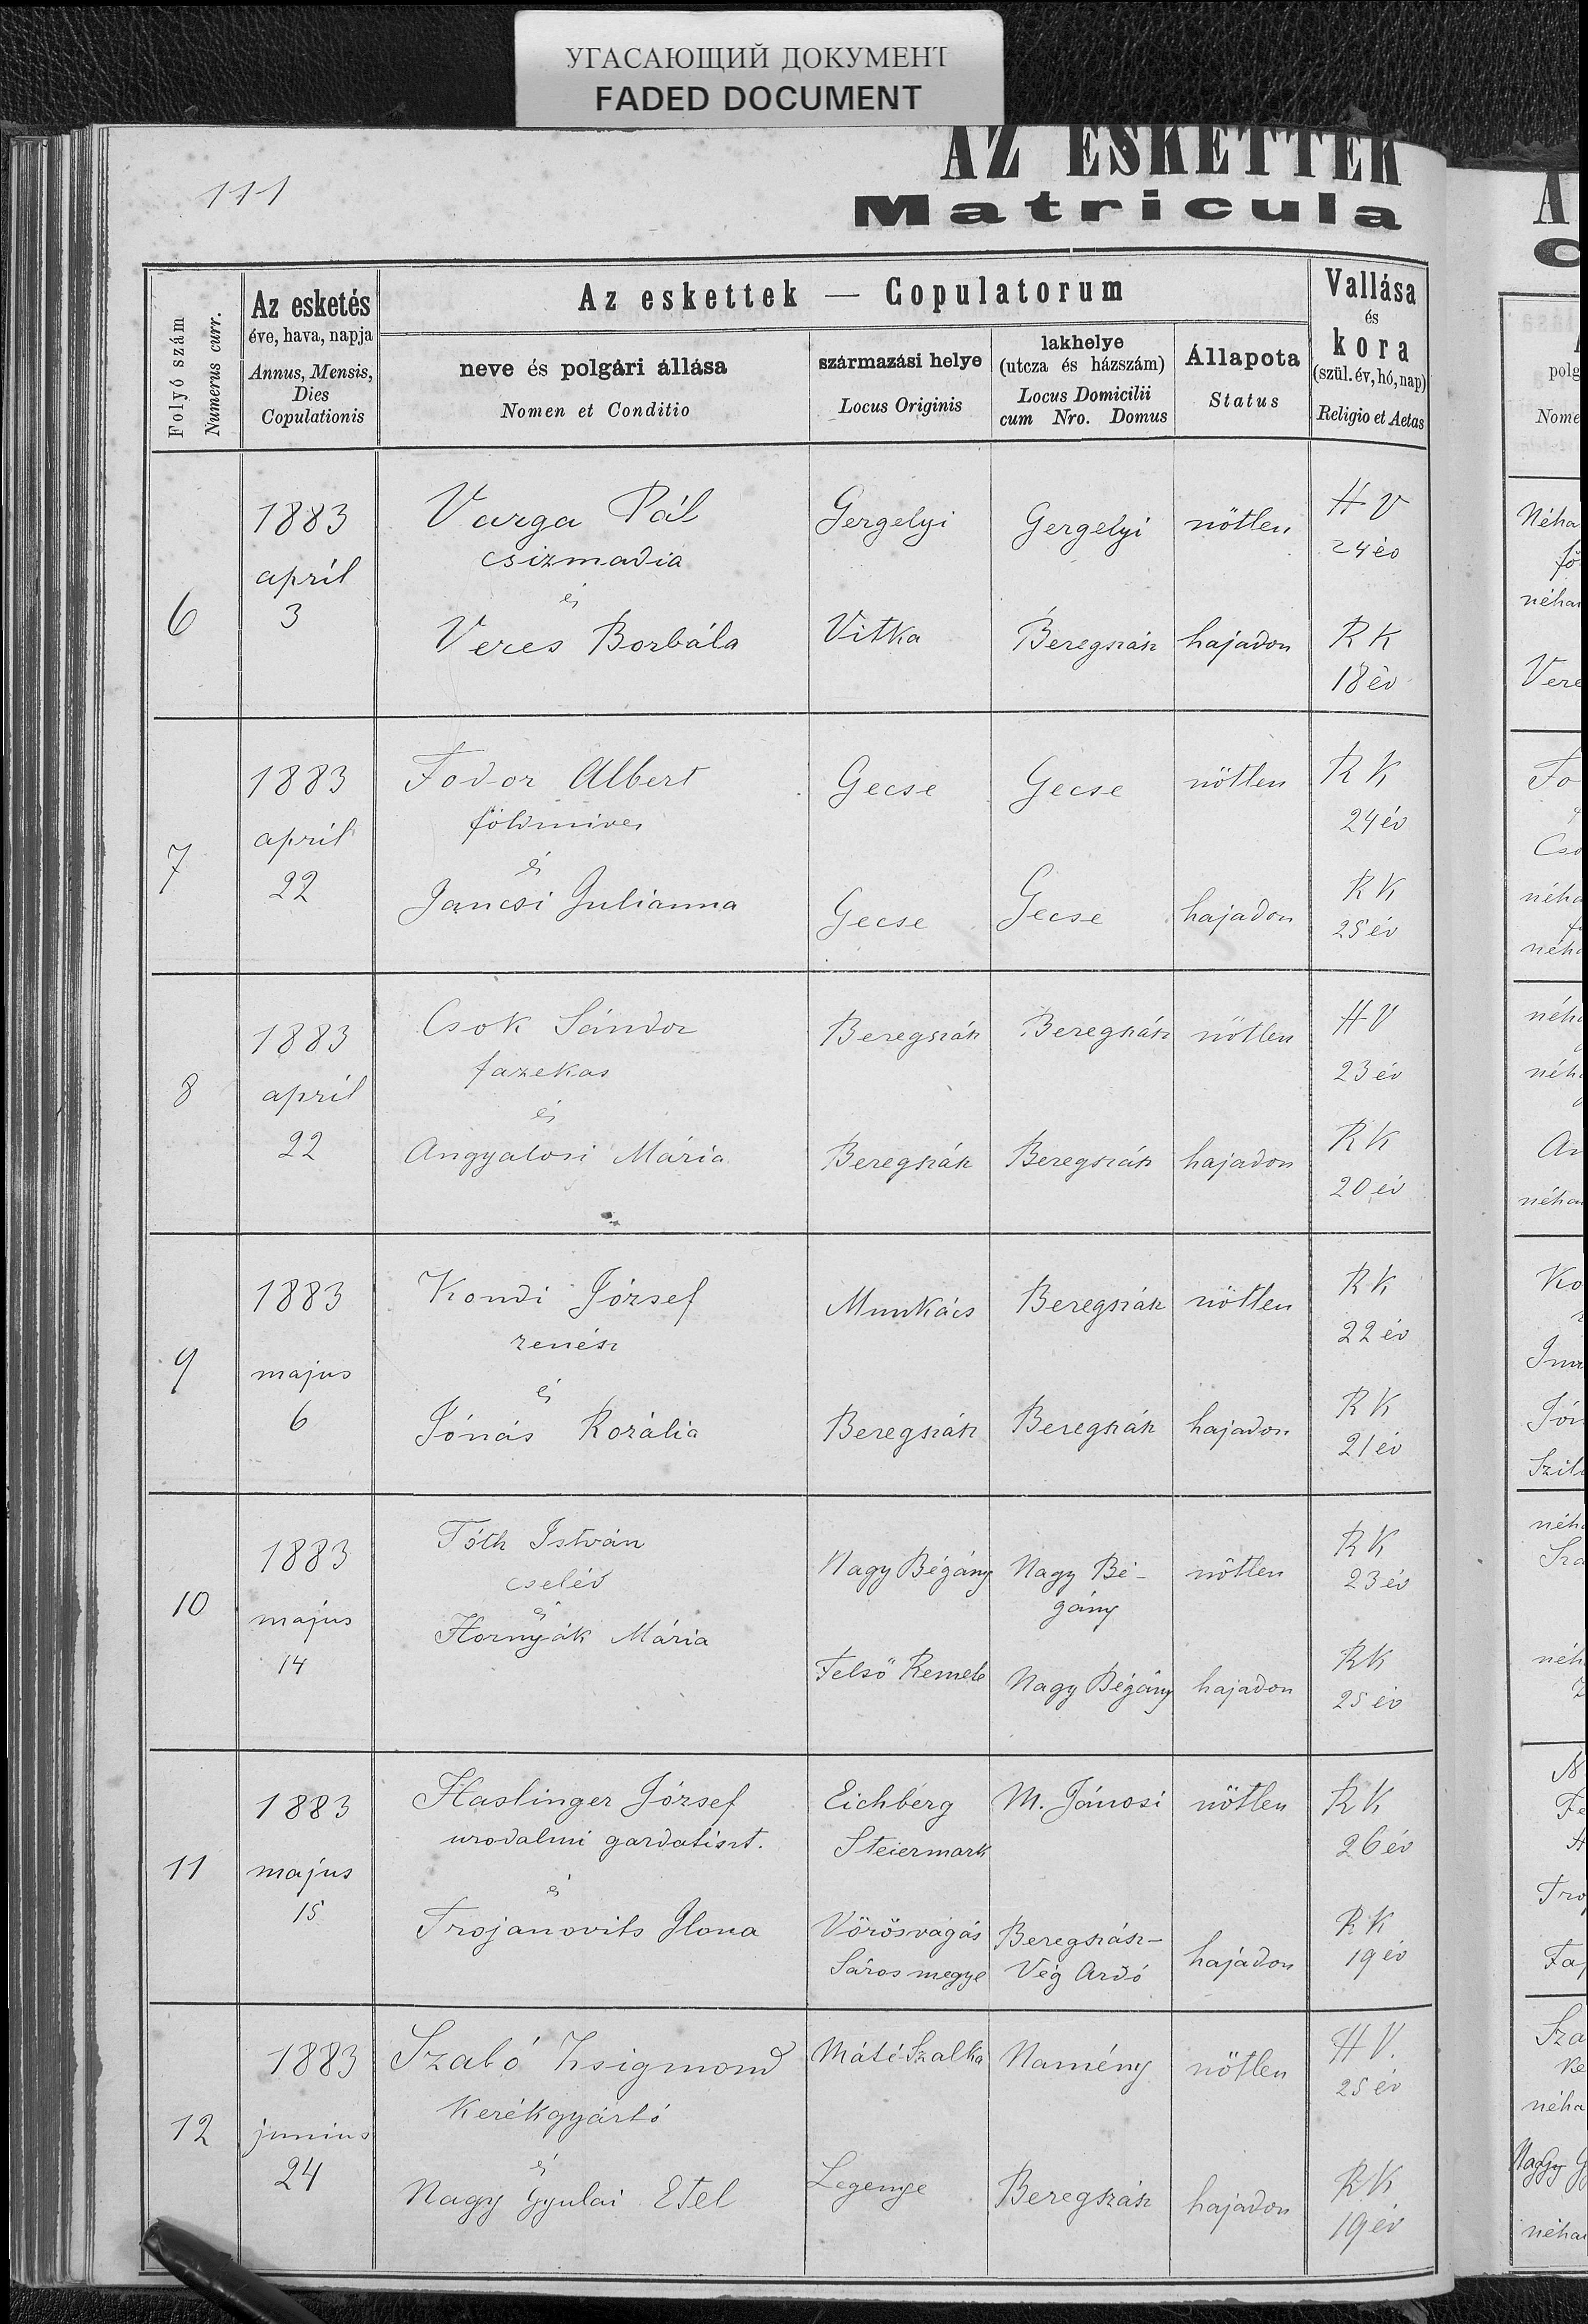 УГАСАЮЩИЙ ДОКУМЕНТ
FADED DOCUMENT
AZ ESKETTEK
Matricula
111
Folyó szám
Numerus curr.
Az esketés
éve, hava, napja
Annus, Mensis,
Dies
Copulationis
Az eskettek — Copulatorum
neve és polgári állása
Nomen et Conditio
származási helye
Locus Originis
lakhelye
(utcza és házszám)
Locus Domicilii
cum Nro. Domus
Állapota
Status
Vallása
és
kora
(szül. év, hó, nap)
Religio et Aetas
6
1883
april
3
Varga Pál
csizmadia
és
Veres Borbála
Gergelyi
Vitka
Gergelyi
Beregszász
nőtlen
hajadon
H V
24 év
R K
18 év
7
1883
april
22
Fodor Albert
földmives
és
Jancsi Julianna
Gecse
Gecse
Gecse
Gecse
nőtlen
hajadon
R K
24 év
R K
25 év
8
1883
april
22
Csok Sándor
fazekas
és
Angyalosi Mária
Beregszász
Beregszász
Beregszász
Beregszász
nőtlen
hajadon
H V
23 év
R K
20 év
9
1883
majus
6
Kondi József
zenész
és
Jónás Rozália
Munkács
Beregszász
Beregszász
Beregszász
nőtlen
hajadon
R K
22 év
R K
21 év
10
1883
május
14
Tóth István
cseléd
és
Hornyák Mária
Nagy Bégány
Felső Remete
Nagy Bé-
gány
Nagy Bégány
nőtlen
hajadon
R K
23 év
R K
25 év
11
1883
majus
15
Haslinger József
urodalmi gazdatiszt.
és
Trojanovits Ilona
Eichberg
Steiermark
Vörösvágás
Sáros megye
M. Jánosi
Beregszász-
Vég Ardó
nőtlen
hajadon
R K
26 év
R K
19 év
12
1883
junius
24
Szabó Zsigmond
Kerékgyártó
és
Nagy Gyulai Etel
Máté Szalka
Legenye
Namény
Beregszász
nőtlen
hajadon
H V.
25 év
R K
19 év